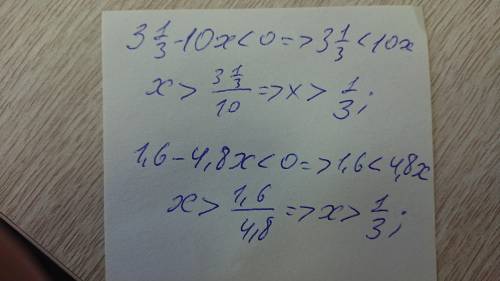 3 1/3 - 10x < 0 => 3 1/3 < 10x
x > (3 1/3)/10 => x > 1/3;
1,6 - 4,8x < 0 => 1,6 < 4,8x
x > 1,6/4,8 => x > 1/3;